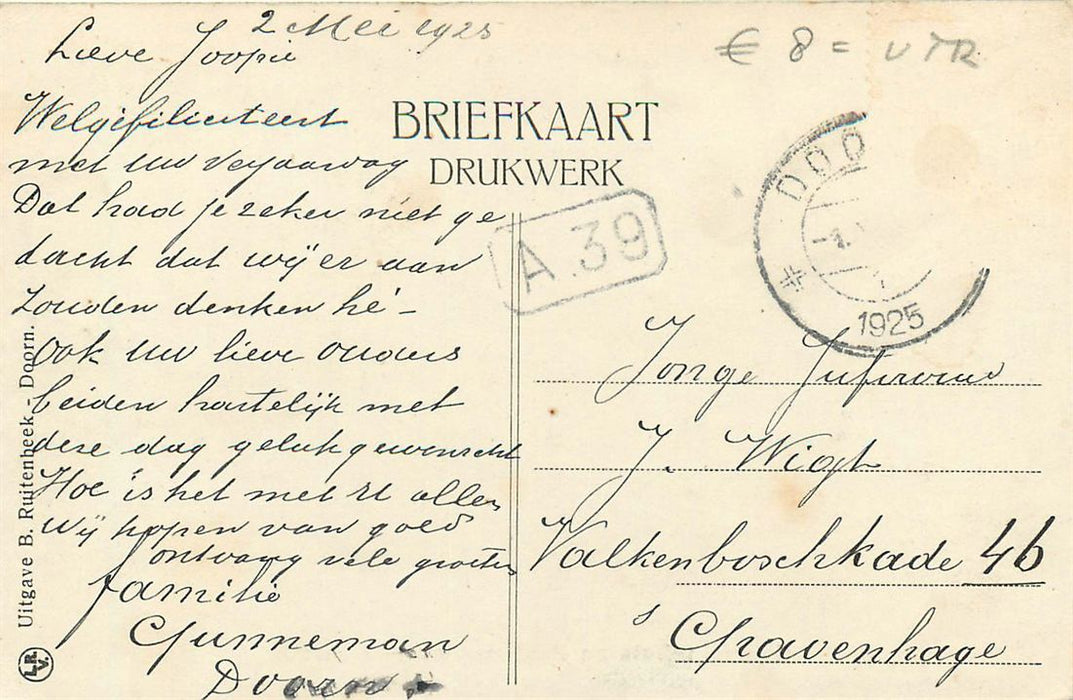 2 Mei 1925
Lieve Joopie
Welgefiliciteert
met uw verjaardag
Dat had je zeker niet ge
dacht dat wij er aan
zouden denken hé -
Ook uw lieve ouders
beiden hartelijk met
deze dag gelukgewenscht
Hoe is het met U allen
Wij hopen van goed
ontvang vele groeten
familie
Gunneman
Doorn
Uitgave B. Ruitenbeek - Doorn.
L.R.V.
€ 8 = UTR
BRIEFKAART
DRUKWERK
A. 39
DOO
1925
Jonge Jufvrouw
J. Wigt
Valkenboschkade 46
s Gravenhage